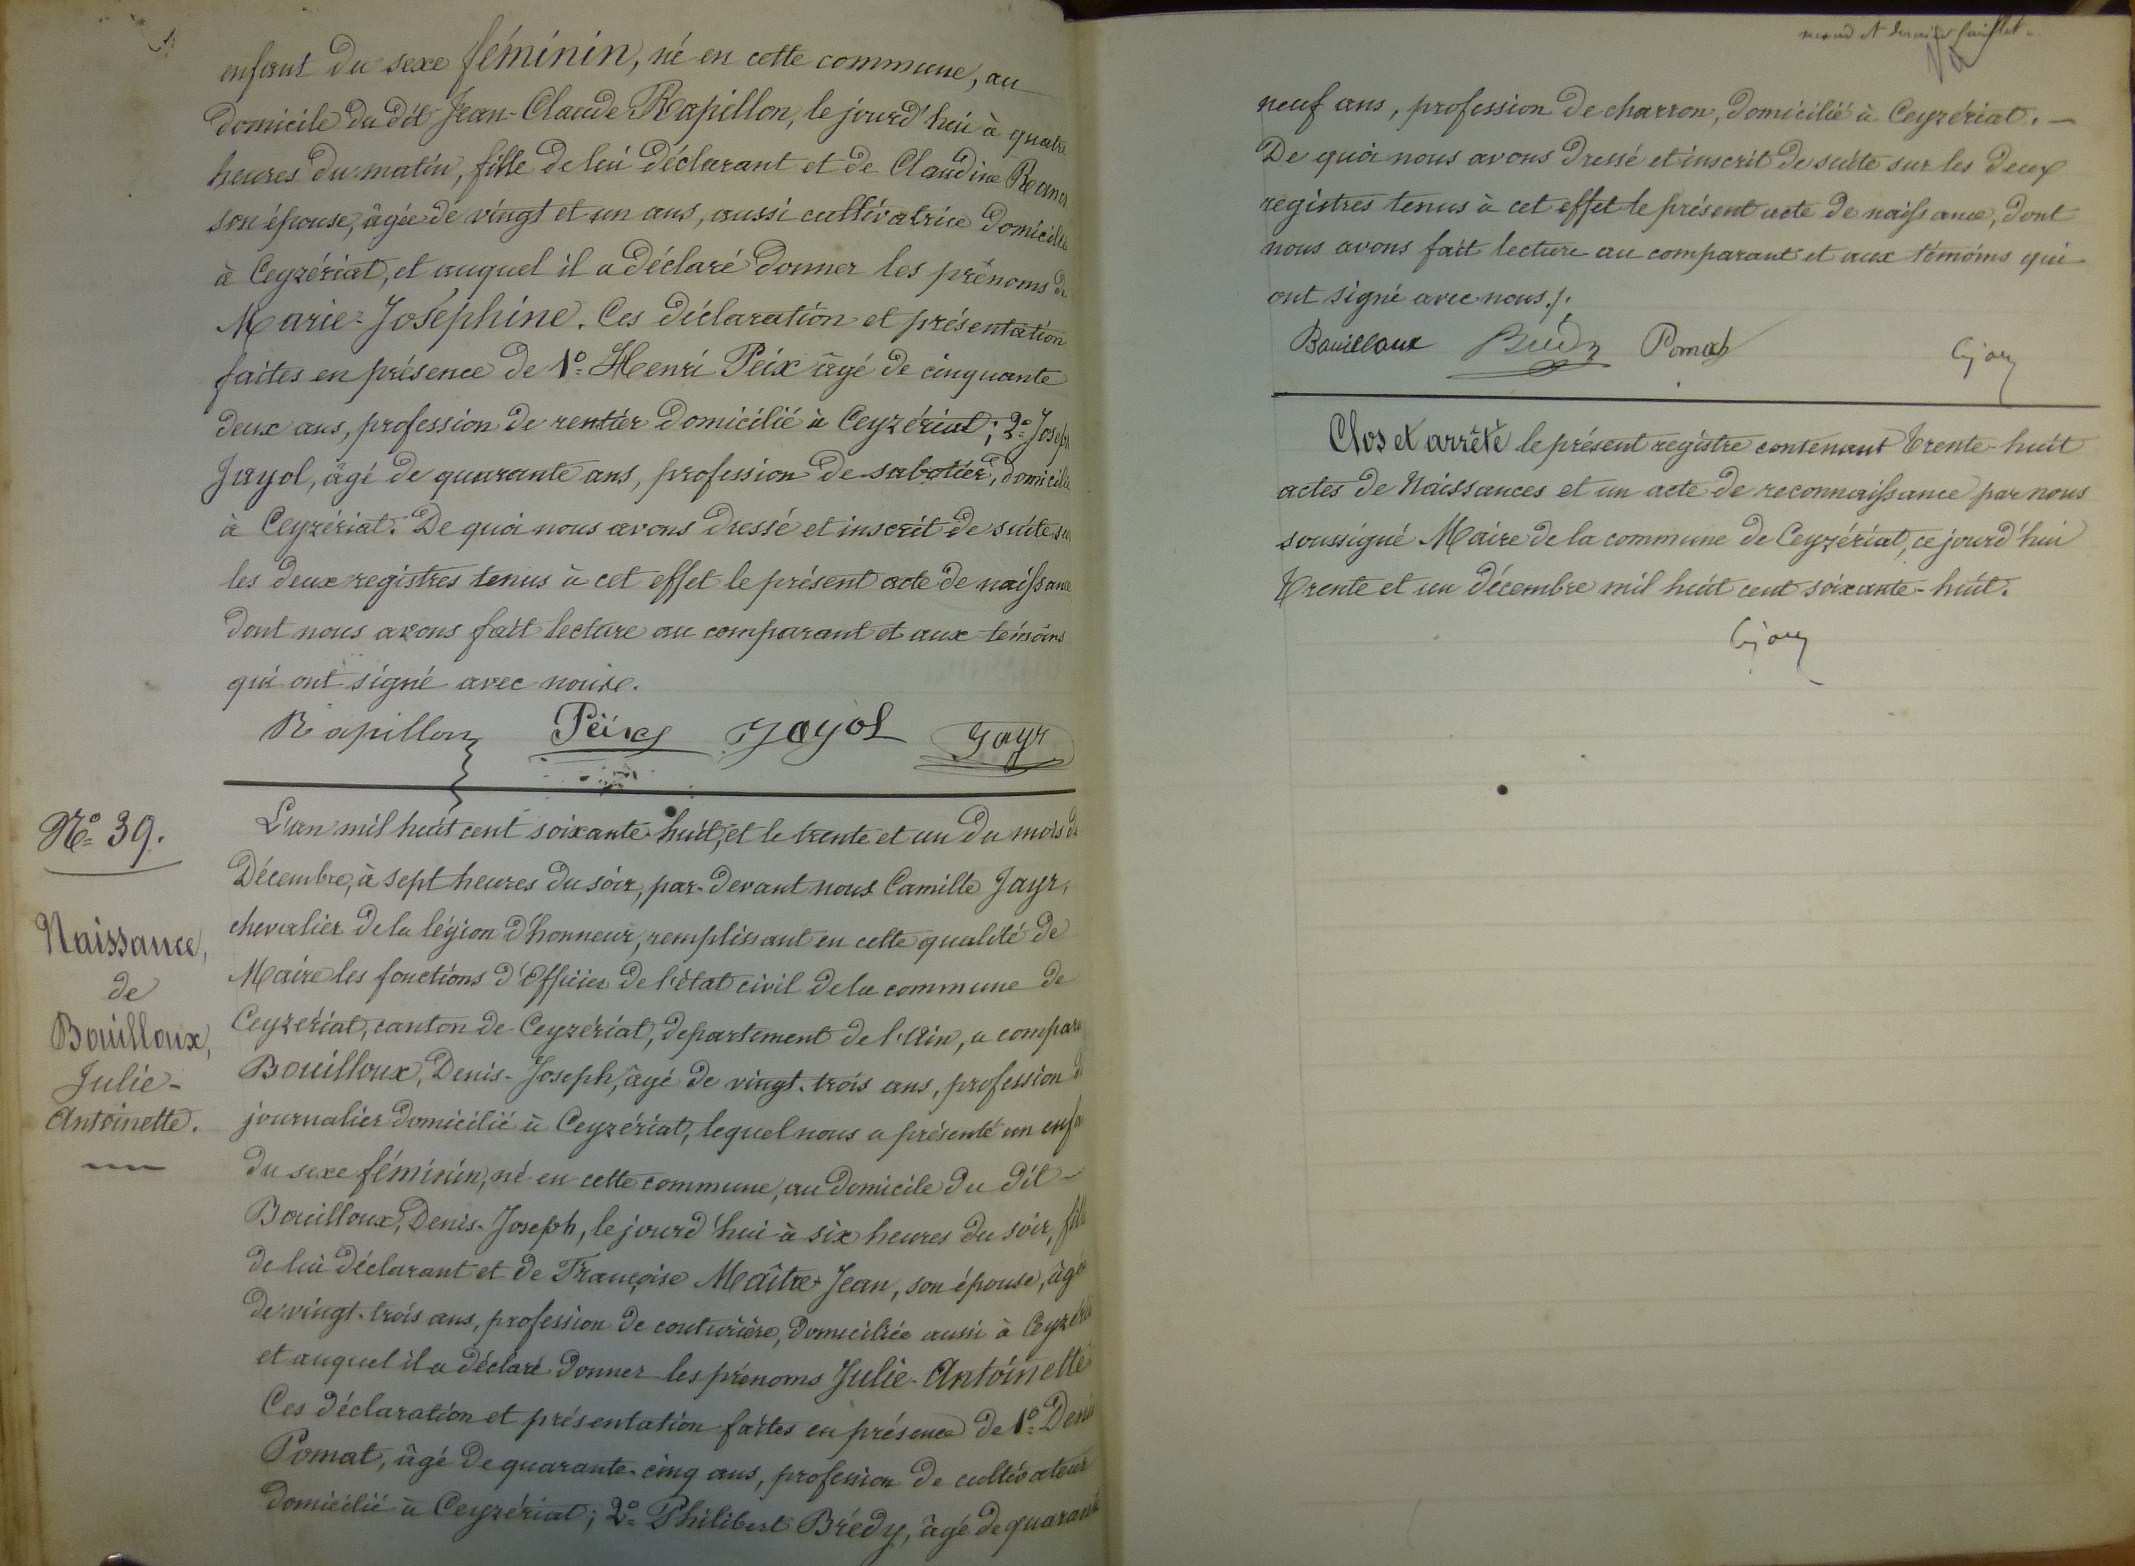 enfant du sexe féminin, né en cette commune, au
domicile du dit Jean-Claude Rapillon, le jourd'hui à quatre
heures du matin, fille de lui déclarant et de Claudine
son épouse, âgée de vingt et un ans, aussi cultivatrice domiciliée
à Ceyzériat, et auquel il a déclaré donner les prénoms de
Marie-Joséphine. Ces déclaration et présentation
faites en présence de 1º Henri Peix âgé de cinquante
deux ans, profession de rentier domicilié à Ceyzériat; 2º Joseph
Jayol, âgé de quarante ans, profession de sabotier, domicilié
à Ceyzériat. De quoi nous avons dressé et inscrit de suite sur
les deux registres tenus à cet effet le présent acte de naissance
dont nous avons fait lecture au comparant et aux témoins
qui ont signé avec nous.
Rapillon Jayol Jayr
Nº 39.
Naissance,
de
Bouilloux,
Julie-
Antoinette.
L'an mil huit cent soixante-huit, et le trente et un du mois de
Décembre, à sept heures du soir, par-devant nous Camille Jayr,
chevalier de la légion d'honneur, remplissant en cette qualité de
Maire les fonctions d'Officier de l'état civil de la commune de
Ceyzériat, canton de Ceyzériat, département de l'Ain, a comparu
Bouilloux, Denis-Joseph, âgé de vingt-trois ans, profession de
journalier domicilié à Ceyzériat, lequel nous a présenté un enfant
du sexe féminin, né en cette commune, au domicile du dit
Bouilloux, Denis-Joseph, le jourd'hui à six heures du soir, fille
de lui déclarant et de Françoise Maître-Jean, son épouse, âgée
de vingt-trois ans, profession de couturière, domiciliée aussi à Ceyzériat
et auquel il a déclaré donner les prénoms Julie-Antoinette
Ces déclaration et présentation faites en présence de 1º Denis
Pomat, âgé de quarante-cinq ans, profession de cultivateur
domicilié à Ceyzériat; 2º Philibert Brédy, âgé de quarante
neuf ans, profession de charron, domicilié à Ceyzériat.
De quoi nous avons dressé et inscrit de suite sur les deux
registres tenus à cet effet le présent acte de naissance, dont
nous avons fait lecture au comparant et aux témoins qui
ont signé avec nous.
Bouilloux Brédy Pomat
Clos et arrêté le présent registre contenant trente-huit
actes de Naissances et un acte de reconnaissance par nous
soussigné Maire de la commune de Ceyzériat, ce jourd'hui
trente et un décembre mil huit cent soixante-huit.